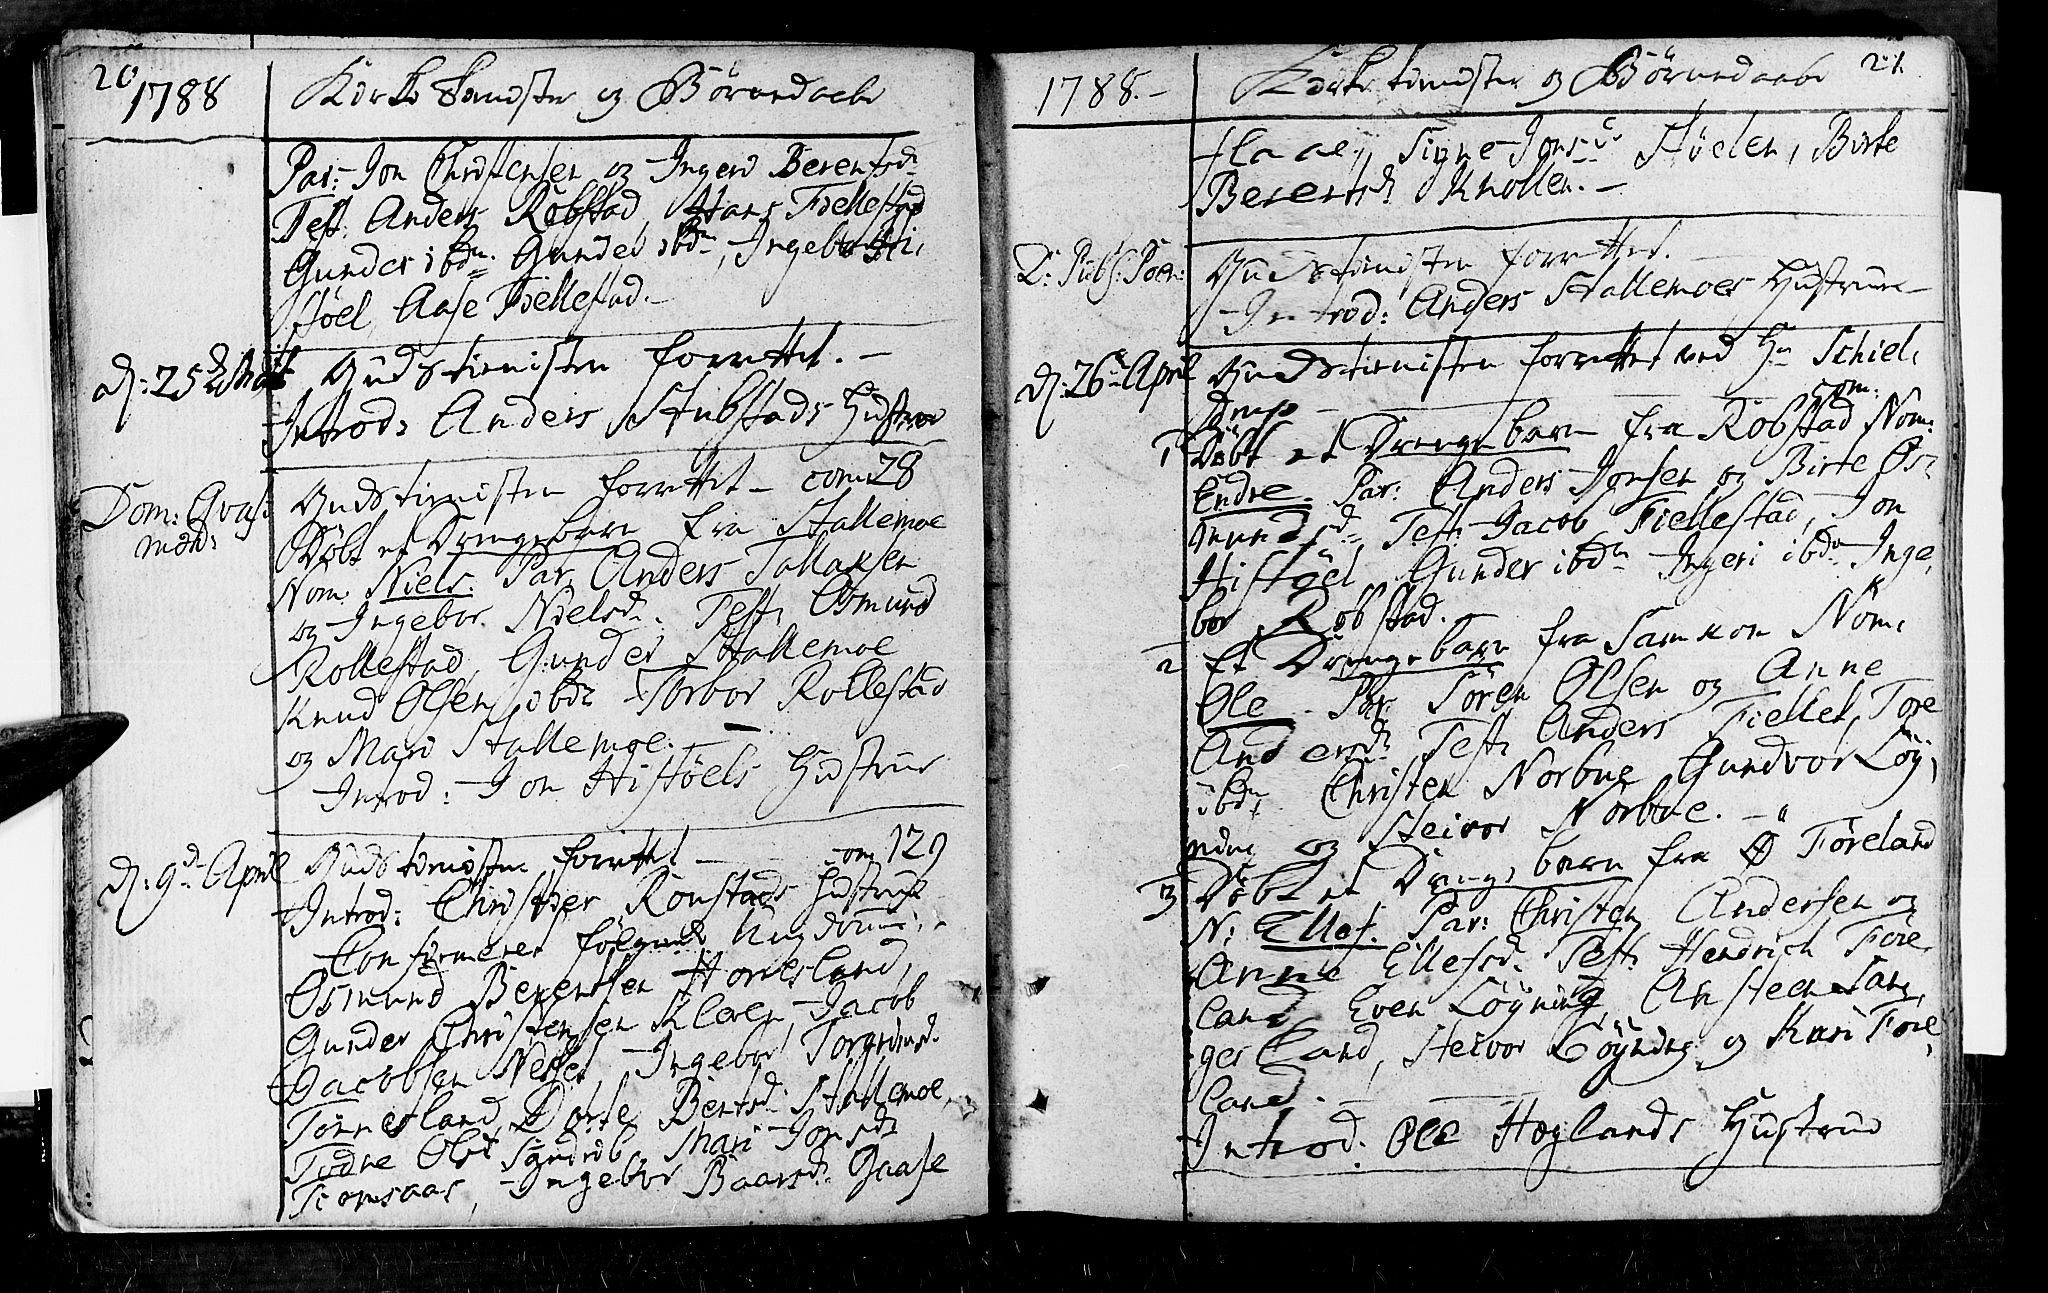 20 1788 Kirke tienester og Børnedaabe
Par: Jon Christensen og Ingerd Berentsd:
Test: Anders Robstad, Hans Fiellestad
Gunder ibdm. Gundel ibdm, Ingebor Hi,
støel, Aase Fiellestad. -
d: 25de Mart Gudstienisten forrettet. -
Introd: Anders Stubstads Hustrue
Dom: Qvasi Gudstienisten forrettet - com. 28
mod: Døbt et Drengebarn fra Stallemoe
Nom. Niels. Par. Anders Tallaksen
og Ingebor Nielsd. Test: Osmund
Rollestad, Gunder Stallemoe
Knud Olsen ibdm Torbor Rollestad
og Mari Stallemoe. -
Introd: Jon Histøels Hustrue
d: 9de April Gudstienisten forrettet - com 129
Introd: Christen Ronstads Hustrue
Confirmeret følgende Ungdomme:
Osmund Berentsen Hornesland,
Gunder Christensen Kleven, Jacob
Jacobsen Neset, Ingebor Torgrimsd.
Tonnesland, Dorte Bentsd: Stallemoe,
Todne Olsd Mari Jonsd:
Tiomsaas, Ingebor Baarsd. Gaase
1788. - Kirke tienester og Børnedaabe 21.
flaae, Signe Jonsd Støelen, Birte
Berentsd Knollen. -
Gudstienisten forrettet.
Introd: Anders Stallemoes Hustrue -
d: 26de April Gudstienisten forrettet ved Hr Schiel,
drup - com.
1 Døbt et Drengebarn fra Robstad Nom:
Endre. Par: Anders Jonsen og Birte Os,
mundsd Test: Jacob Fiellestad, Jon
Histøel Gunder ibdm Ingeri ibdm Inge,
bor Robstad.
2 Et Drengebarn fra Samkom Nom:
Ole. Par: Søren Olsen og Anne
Andersd: Test: Anders Fiellet, Tore
ibdm, Christen Norbue Gundvor Løy,
ning og Steivor Norbue. -
3 Døbt et Drengebarn fra Ø Føreland
N: Ellef. Par: Christen Andersen og
Anne Ellefsd. Test: Hendrich Føre,
land Even Løyning, Ansteen Lan,
gerland, Steivor Løyning og Kari Føre,
land. -
Introd: Ole Høglands Hustrue